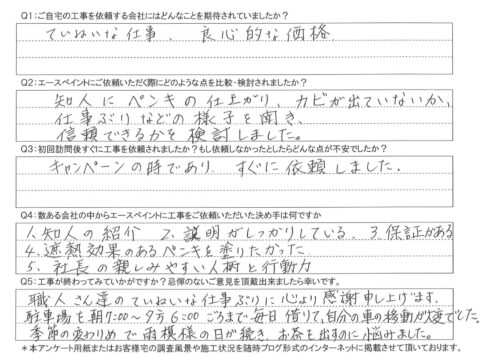 Q1:ご自宅の工事を依頼する会社にはどんなことを期待されていましたか？
ていねいな仕事、良心的な価格
Q2:エースペイントにご依頼いただく際にどのような点を比較・検討されましたか？
知人にペンキの仕上がり、カビが出ていないか、
仕事ぶりなどの様子を聞き、
信頼できるかを検討しました。
Q3:初回訪問後すぐに工事を依頼されましたか？もし依頼しなかったとしたらどんな点が不安でしたか？
キャンペーンの時であり、すぐに依頼しました。
Q4:数ある会社の中からエースペイントに工事をご依頼いただいた決め手は何ですか
1、知人の紹介 2、説明がしっかりしている、3、保証がある
4、遮熱効果のあるペンキを塗りたかった
5、社長の親しみやすい人柄と行動力
Q5:工事が終わってみていかがですか？忌憚のないご意見を頂戴出来ましたら幸いです。
職人さん達のていねいな仕事ぶりに心より感謝申し上げます。
駐車場を朝7:00～夕方6:00ごろまで毎日借りて、自分の車の移動が大変でした。
季節の変わりめで雨模様の日が続き、お茶を出すのに悩みました。
＊本アンケート用紙またはお客様宅の調査風景や施工状況を随時ブログ形式のインターネットに掲載させて頂いております。